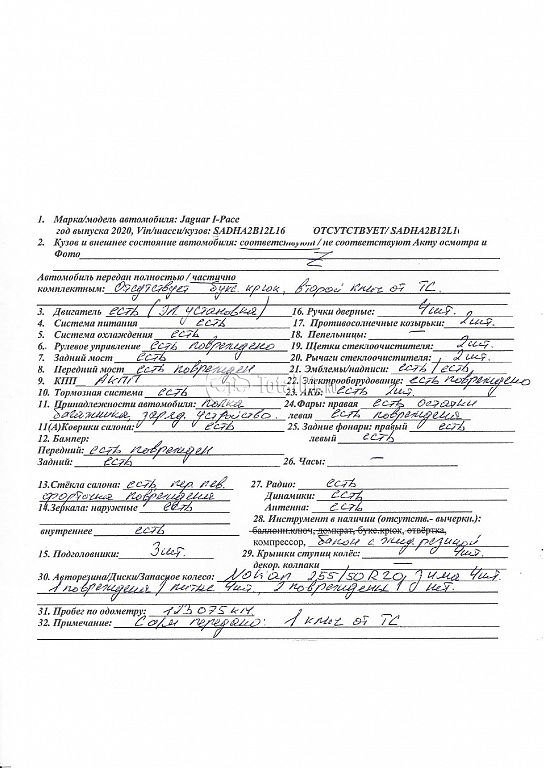 1. Марка/модель автомобиля: Jaguar I-Pace
год выпуска 2020, Vin/шасси/кузов: SADHA2B12L16 ОТСУТСТВУЕТ/ SADHA2B12L1
2. Кузов и внешнее состояние автомобиля: соответствуют / не соответствуют Акту осмотра и
Фото
Автомобиль передан полностью / частично
комплектным: Отсутствует букс. крюк, второй ключ от ТС.
3. Двигатель есть (эл. установка) 16. Ручки дверные: 4шт.
4. Система питания есть 17. Противосолнечные козырьки: 2шт.
5. Система охлаждения есть 18. Пепельницы: —
6. Рулевое управление есть повреждено 19. Щетки стеклоочистителя: 2шт.
7. Задний мост есть 20. Рычаги стеклоочистителя: 2шт.
8. Передний мост есть поврежден 21. Эмблемы/надписи: есть / есть
9. КПП АКПП 22. Электрооборудование: есть повреждено
10. Тормозная система есть 23. АКБ: есть 1шт.
11. Принадлежности автомобиля: полка 24. Фары: правая есть остатки
багажника, заряд. устройство. левая есть повреждена
11(А)Коврики салона: есть 25. Задние фонари: правый есть
12. Бампер: левый есть
Передний: есть поврежден
Задний: есть 26. Часы: —
13. Стёкла салона: есть пер. лев. 27. Радио: есть
форточка повреждена Динамики: есть
14. Зеркала: наружные есть Антенна: есть
28. Инструмент в наличии (отсутств.- вычеркн.):
внутреннее есть баллонн.ключ, домкрат, букс.крюк, отвёртка,
компрессор, балон с жид. резиной
15. Подголовники: 3шт. 29. Крышки ступиц колёс: 4шт.
декор. колпаки —
30. Авторезина/Диски/Запасное колесо: 255/50 R20, Зима 4шт.
1 повреждена / литые 4шт, 2 повреждены / нет.
31. Пробег по одометру: 123075 км
32. Примечание: передано: 1 ключ от ТС